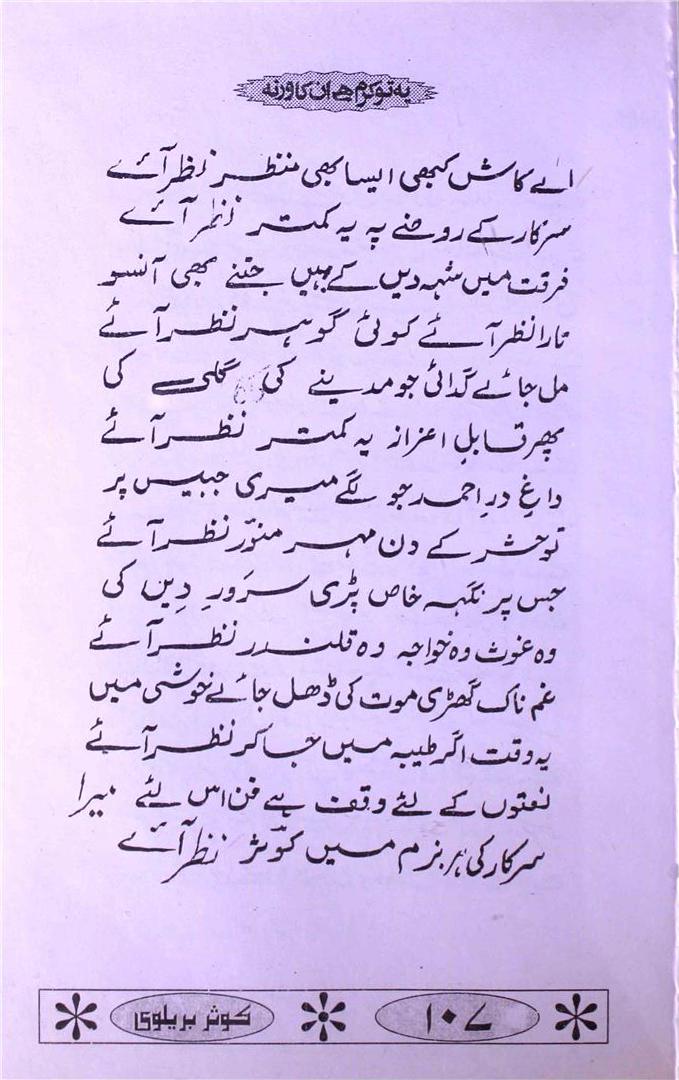 یہ تو کرم ہے ان کا ورنہ
اے کاش کبھی ایسا بھی منظر نظر آئے
سرکار کے روضے پہ یہ کمتر نظر آئے
فرقت میں شہہ دیں کے بہیں جتنے بھی آنسو
تارا نظر آئے کوئی گوہر نظر آئے
مل جائے گدائی جو مدینے کی گلی کی
پھر قابلِ اعزاز یہ کمتر نظر آئے
داغِ درِ احمد جو لگے میری جبیں پر
تو حشر کے دن مہر منوّر نظر آئے
جس پر نگہہ خاص پڑی سرَورِ دِیں کی
وہ غوث وہ خواجہ وہ قلندر نظر آئے
غم ناک گھڑی موت کی ڈھل جائے خوشی میں
یہ وقت اگر طیبہ میں جا کر نظر آئے
نعتوں کے لئے وقف ہے فن اس لئے میرا
سرکار کی ہر بزم میں کوثر نظر آئے
۱۰۷
کوثر بریلوی